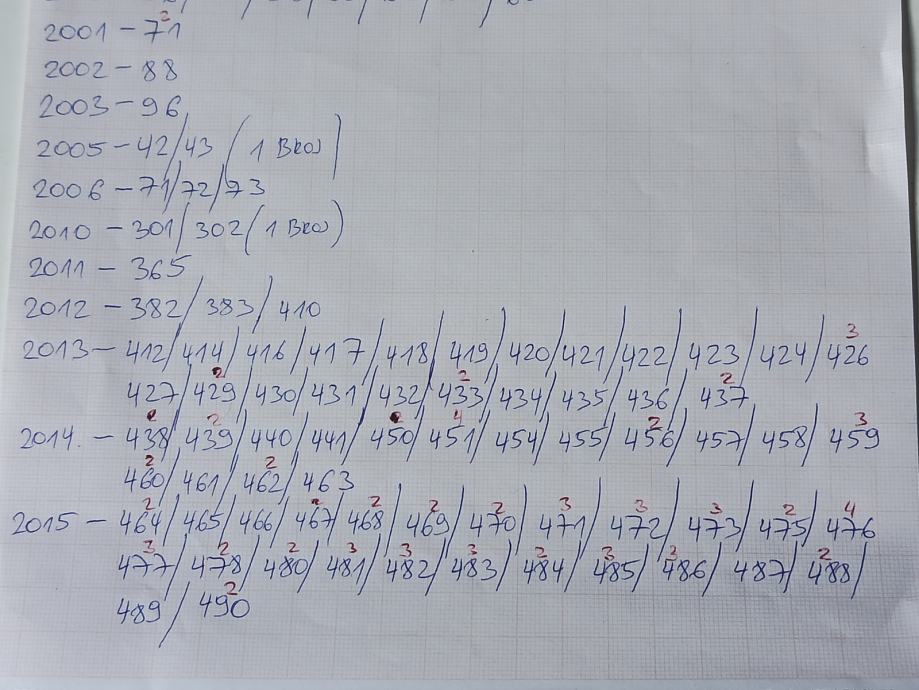 2001 - 71 2
2002 - 88
2003 - 96
2005 - 42/43 (1 Broj)
2006 - 71/72/73
2010 - 301/302 (1 Broj)
2011 - 365
2012 - 382/383/410
2013 - 412/414/416/417/418/419/420/421/422/423/424/426 3
427/429 2/430/431/432/433 2/434/435/436/437 2
2014. - 438/439 2/440/441/450/451 4/454/455/456 2/457/458/459 3
460 2/461/462 2/463
2015 - 464 2/465/466/467 2/468 2/469 2/470 2/471 3/472 3/473 3/475 2/476 4
477 3/478 2/480 2/481 3/482 3/483 3/484 2/485 3/486 2/487/488 2/
489/490 2